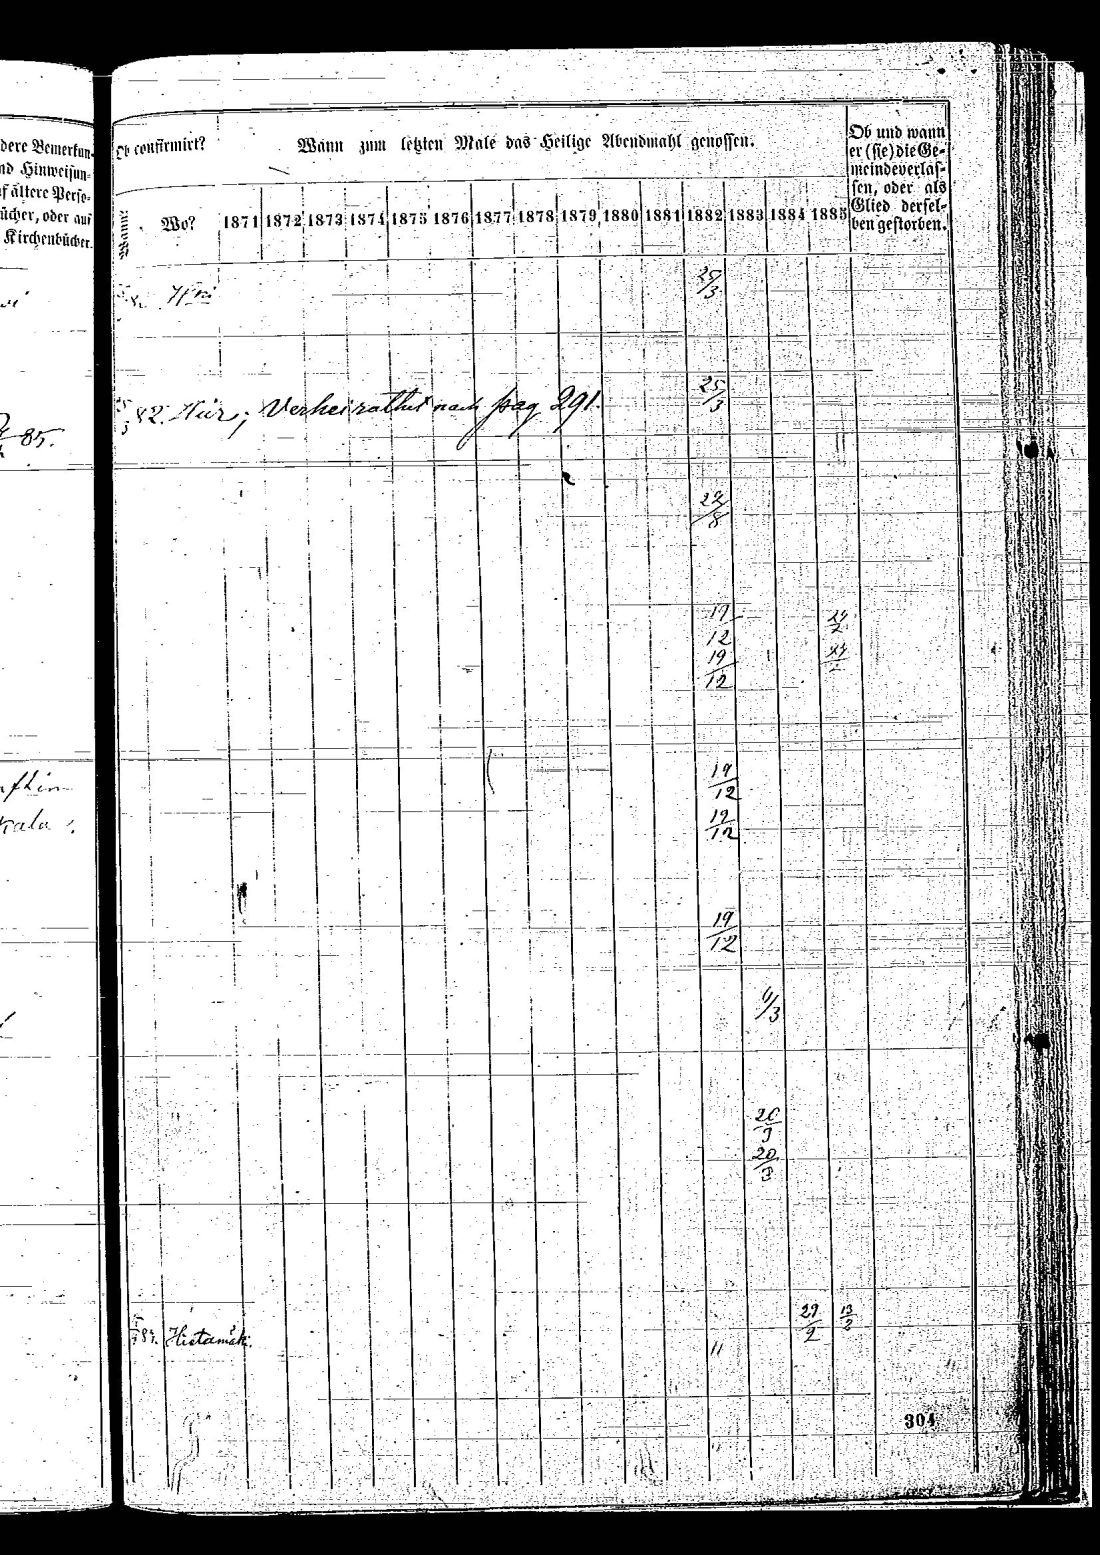 dere Bemerkun-
nd Hinweisun-
f ältere Perso-
ücher, oder auf
Kirchenbücher.
85.
Ob confirmirt?
Wann zum letzten Male das Heilige Abendmahl genossen.
Ob und wann
er (sie) die Ge-
meinde verlas-
sen, oder als
Glied dersel-
ben gestorben.
Wann?
Wo?
1871 1872 1873 1874 1875 1876 1877 1878 1879 1880 1881 1882 1883 1884 1885
25/3
82. Hier; Verheirathet nach pag 291.
25/3
22/8
19/12
19/12
19/12
19/12
19/12
6/3
20/3
20/3
Hietamäk.
29/2 13/2
304